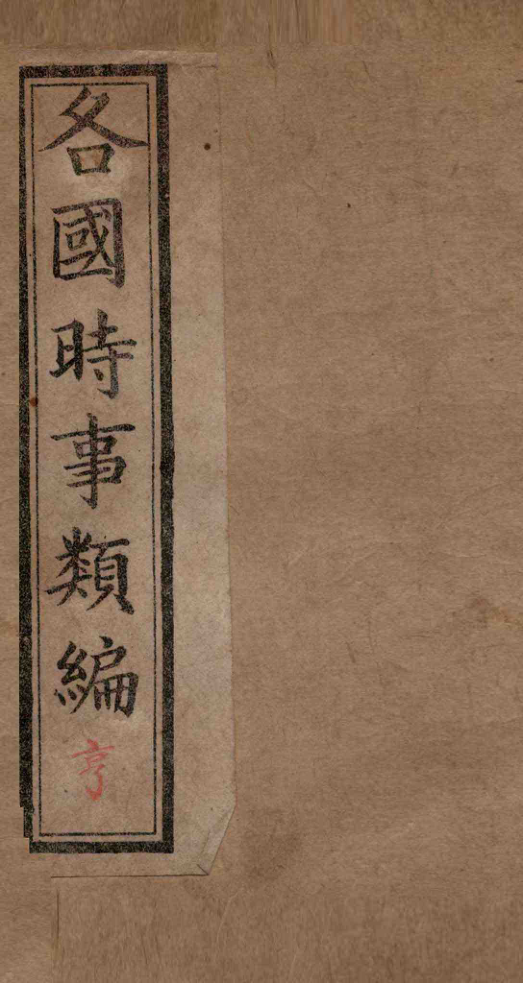 各國時事類編
亨